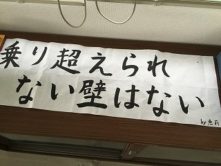 乗り超えられ
ない壁はない